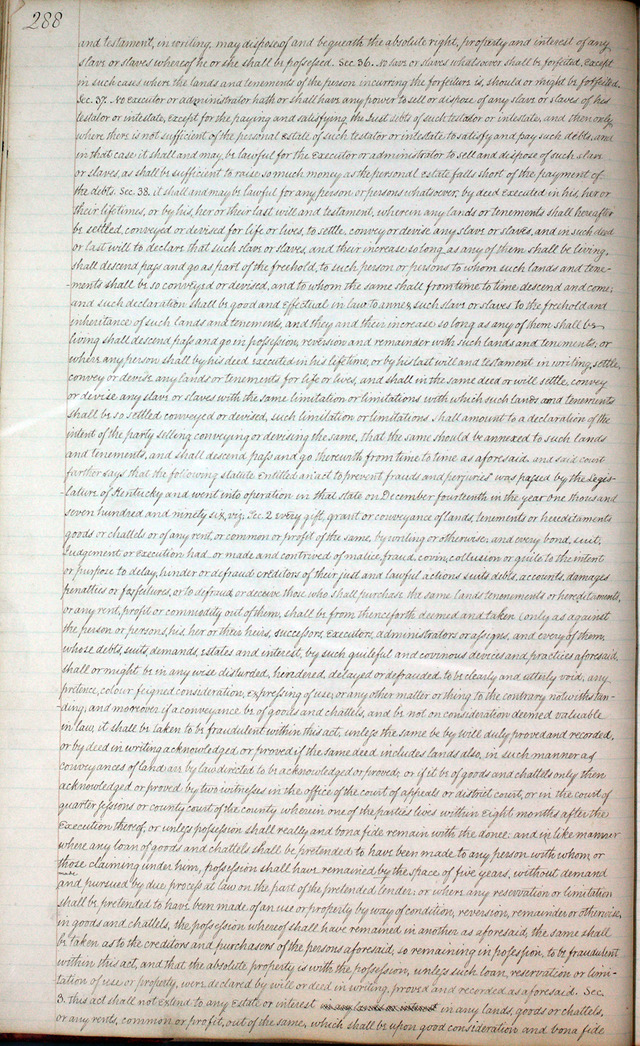 288
and testament, in writing, may dispose of and bequeath the absolute right, property and interest of any
slave or slaves whereof he or she shall be possessed. Sec. 36. no slave or slaves whatsoever shall be forfeited, except
in such cases where the lands and tenements of the person incurring the forfeiture is, should or might be forfeited.
Sec. 37. No executor or administrator hath or shall have any power to sell or dispose of any slave or slaves of his
testator or intestate, except for the paying and satisfying the Just debts of such testator or intestate, and then only
where there is not sufficient of the personal estate of such testator or intestate to satisfy and pay such debts, and
in that case it shall and may be lawful for the Executor or administrator to sell and dispose of such slave
or slaves, as shall be sufficient to raise so much money as the personal estate falls short of the payment of
the debts. Sec. 38. it shall and may be lawful for any person or persons whatsoever, by deed executed in his, her or
their lifetimes, or by his, her or their last will and testament, wherein any lands or tenements shall hereafter
be settled, conveyed or devised for life or lives, to settle, convey or devise any slave or slaves, and in such deed
or last will to declare that such slave or slaves, and their increase so long as any of them shall be living,
shall descend pass and go as part of the freehold, to such person or persons to whom such lands and tene-
-ments shall be so conveyed or devised, and to whom the same shall from time to time descend and come;
and such declaration shall be good and effectual in law to annex such slave or slaves to the freehold and
inheritance of such lands and tenements, and they and their increase so long as any of them shall be
living shall descend pass and go in possession, reversion and remainder with such lands and tenements; or
where any person shall by his deed executed in his lifetime, or by his last will and testament in writing, settle,
convey or devise any lands or tenements for life or lives, and shall in the same deed or will settle, convey
or devise any slave or slaves with the same limitation or limitations with which such lands and tenements
shall be so settled conveyed or devised, such limitation or limitations shall amount to a declaration of the
intent of the party selling conveying or devising the same, that the same should be annexed to such lands
and tenements, and shall descend pass and go therewith from time to time as aforesaid. and said court
further says that the following statute Entitled an "act to prevent frauds and perjuries" was passed by the Legis-
-lature of Kentucky and went into operation in that state on December fourteenth in the year one thousand
seven hundred and ninety six, viz; Sec. 2 Every gift, grant or conveyance of lands, tenements or hereditaments
goods or chattels or of any rent, or common or profit of the same, by writing or otherwise; and every bond, suit,
Judgement or Execution had or made and contrived of malice, fraud, covin, collusion or guile to the intent
or purpose to delay, hinder or defraud creditors of their just and lawful actions suits debts, accounts, damages
penalties or forfeitures, or to defraud or deceive those who shall purchase the same lands tenements or hereditaments,
or any rent, profit or commodity out of them, shall be from thenceforth deemed and taken (only as against
the person or persons, his, her or their heirs, successors, executors, administrators or assigns, and every of them,
whose debts, suits, demands, estates and interest, by such guileful and covinous devices and practices aforesaid,
shall or might be in any wise disturbed, hindered, delayed or defrauded, to be clearly and utterly void; any
pretence, colour, feigned consideration, expressing of use, or any other matter or thing to the contrary notwithstan-
-ding; and moreover if a conveyance be of goods and chattels, and be not on consideration deemed valuable
in law, it shall be taken to be fraudulent within this act, unless the same be by will duly proved and recorded,
or by deed in writing acknowledged or proved if the same deed includes lands also, in such manner as
conveyances of land are by law directed to be acknowledged or proved; or if it be of goods and chattels only then
acknowledged or proved by two witnesses in the office of the court of appeals or district court, or in the court of
quarter sessions or county court of the county wherein one of the parties lives within Eight months after the
Execution thereof, or unless possession shall really and bona fide remain with the donee: and in like manner
where any loan of goods and chattels shall be pretended to have been made to any person with whom, or
those claiming under him, possession shall have remained by the space of five years, without demand
made
and pursued by due process at law on the part of the pretended lender; or where any reservation or limitation
shall be pretended to have been made of an use or property by way of condition, reversion, remainder or otherwise,
in goods and chattels, the possession whereof shall have remained in another as aforesaid; the same shall
be taken as to the creditors and purchasers of the persons aforesaid, so remaining in possession, to be fraudulent
within this act, and that the absolute property is with the possession, unless such loan, reservation or limi-
-tation of use or property, were declared by will or deed in writing, proved and recorded as aforesaid. Sec.
3. this act shall not Extend to any Estate or interest in any lands or interest in any lands, goods or chattels,
or any rents, common or profit, out of the same, which shall be upon good consideration and bona fide